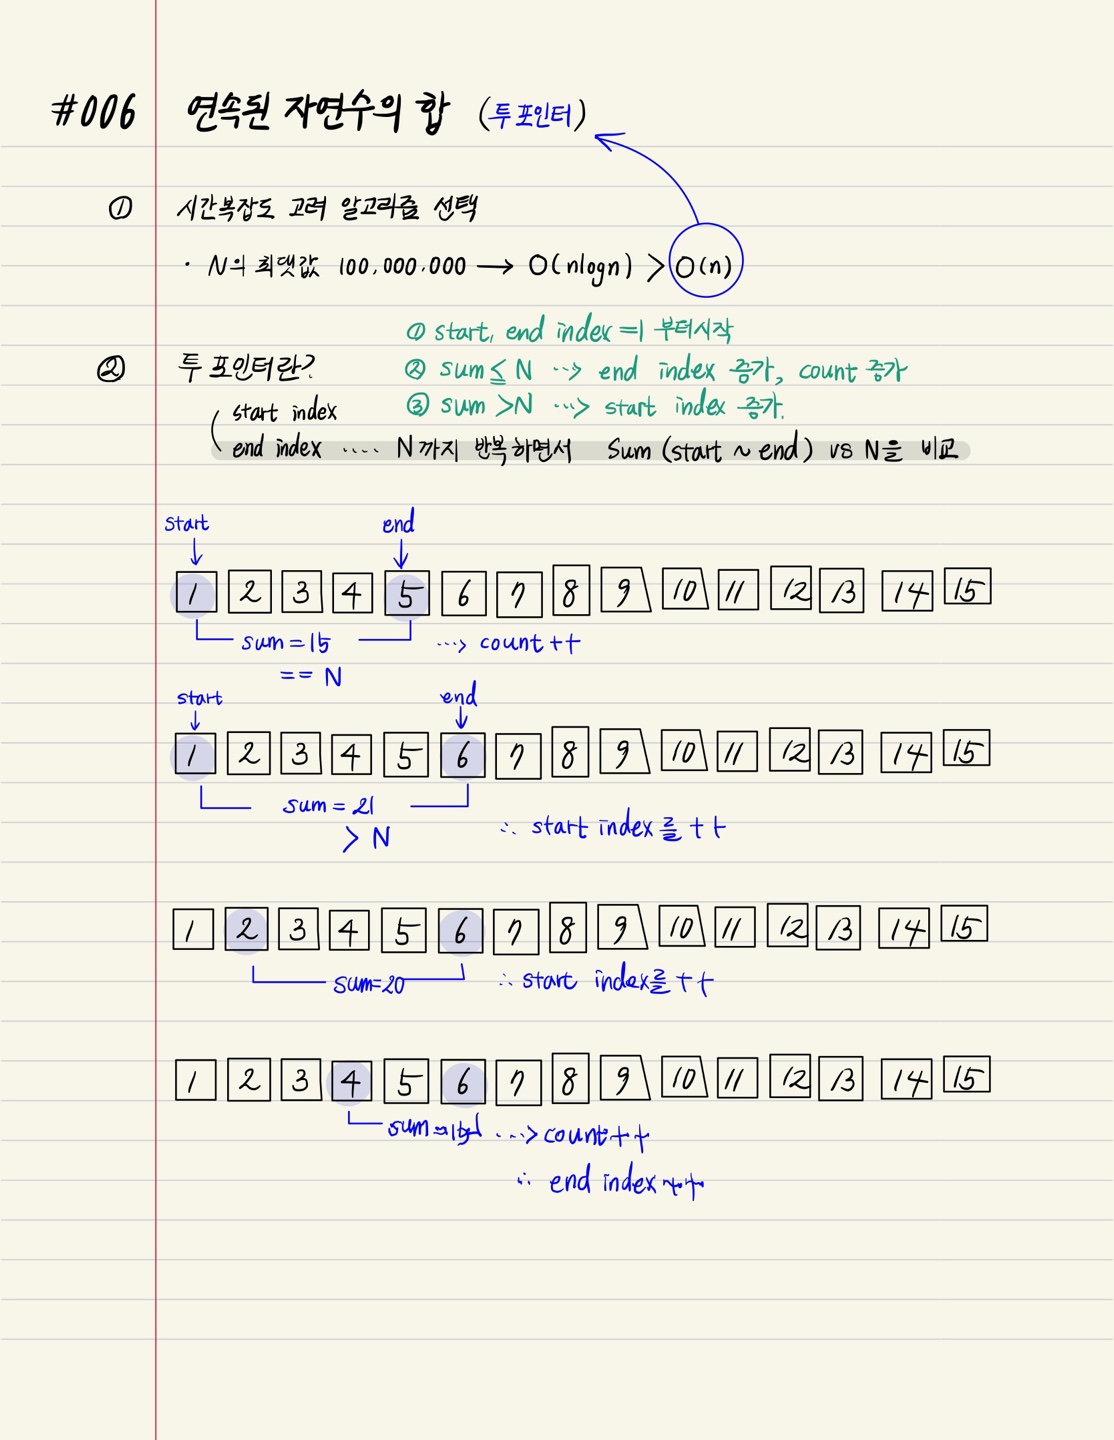 #006 연속된 자연수의 합 (투 포인터)
① 시간복잡도 고려 알고리즘 선택
· N의 최댓값 100,000,000 → O(nlogn) > O(n)
① start, end index =1 부터시작
② 투 포인터란?
② sum ≦ N ⋯> end index 증가, count 증가
③ sum >N ⋯> start index 증가.
start index
end index ‥‥ N까지 반복하면서 Sum (start ~ end) vs N을 비교
start end
1 2 3 4 5 6 7 8 9 10 11 12 13 14 15
sum = 15 ⋯> count ++
== N
start end
1 2 3 4 5 6 7 8 9 10 11 12 13 14 15
sum = 21
> N ∴ start index를 ++
1 2 3 4 5 6 7 8 9 10 11 12 13 14 15
sum=20 ∴ start index를 ++
1 2 3 4 5 6 7 8 9 10 11 12 13 14 15
sum=15 ⋯> count++
∴ end index ++